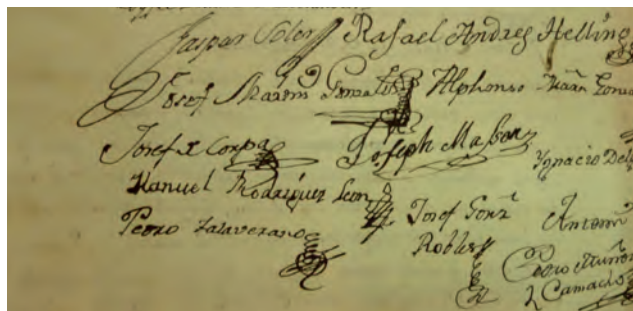 Gaspar Soler Rafael Andres Hellino
Josef Marin Gonzalez Alphonso Marn
Josef Corpa Joseph Masson
Ygnacio Del
Manuel Rodriguez Leon
Josef Gonz Robles
Antonio
Pedro Talaverano
Pedro Muñoz
Camacho